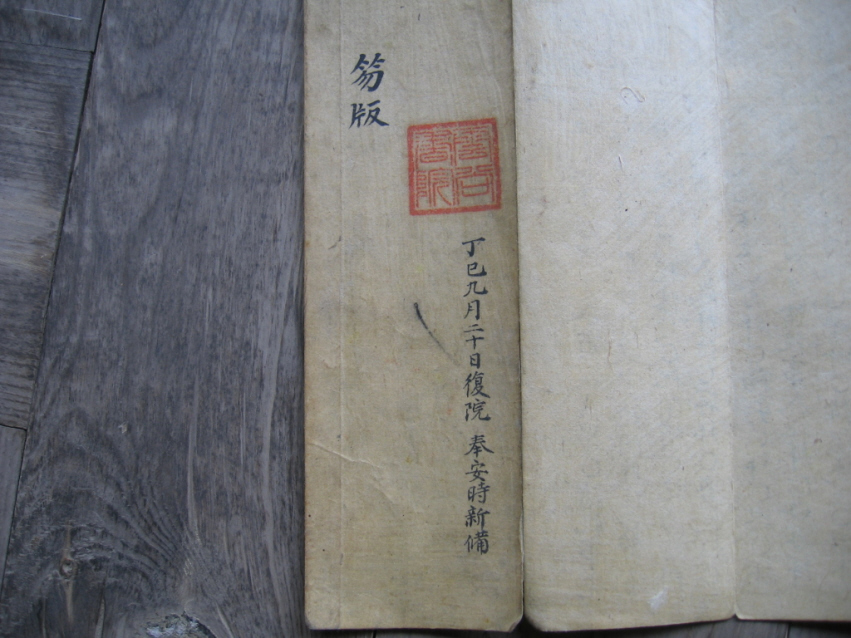 笏版
書院
丁巳九月二十日復院 奉安時新備